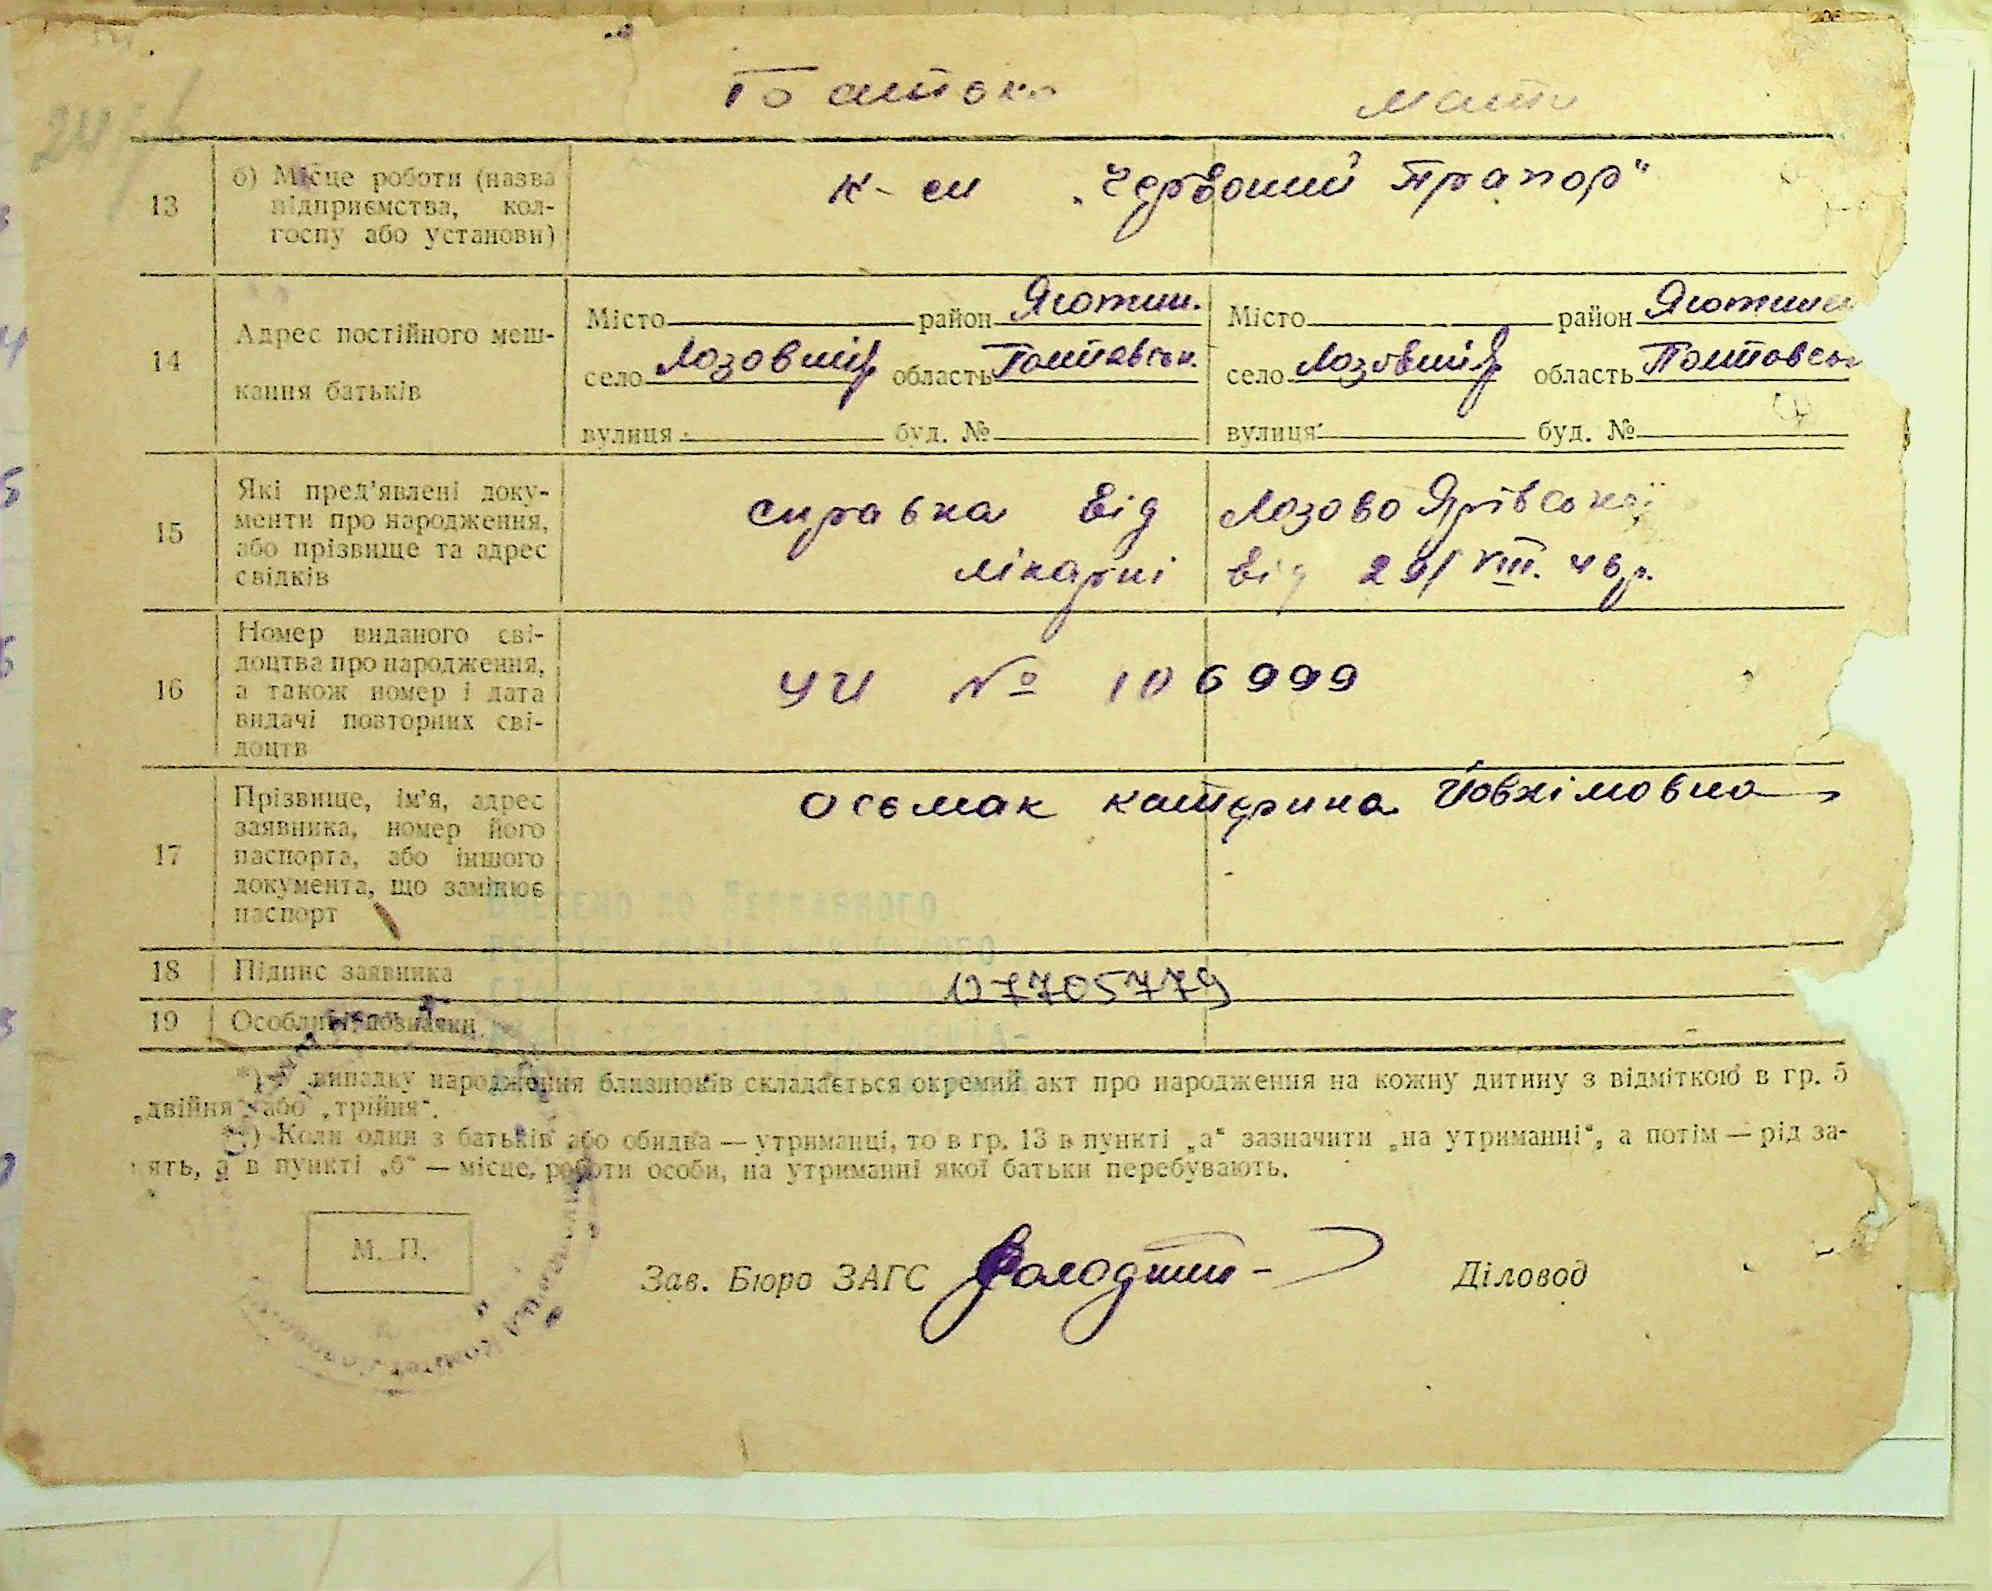 Батько Мати
13 б) Місце роботи (назва
підприємства, кол-
госпу або установи)
к-си „Червоний Прапор"
14 Адрес постійного меш-
кання батьків
Місто район Яготин. Місто район Яготинс
село Лозовий Яр область Полтавськ. село Лозовий Яр область Полтавськ
вулиця буд. № вулиця буд. №
15 Які пред'явлені доку-
менти про народження,
або прізвище та адрес
свідків
справка від Лозово Ярівської
лікарні від VIII. 46р.
16 Номер виданого сві-
доцтва про народження,
а також номер і дата
видачі повторних сві-
доцтв
№ 106999
17 Прізвище, ім'я, адрес
заявника, номер його
паспорта, або іншого
документа, що замінює
паспорт
Осьмак Катерина Йовхімовна
Внесено до Державного
18 Підпис заявника
07705779
19 Особливі
випадку народження близнюків складається окремий акт про народження на кожну дитину з відміткою в гр. 5
„двійня" або „трійня".
Коли один з батьків або обидва — утриманці, то в гр. 13 в пункті „а" зазначити „на утриманні", а потім — рід за-
ять, а в пункті „б" — місце роботи особи, на утриманні якої батьки перебувають.
М. П.
Зав. Бюро ЗАГС Діловод